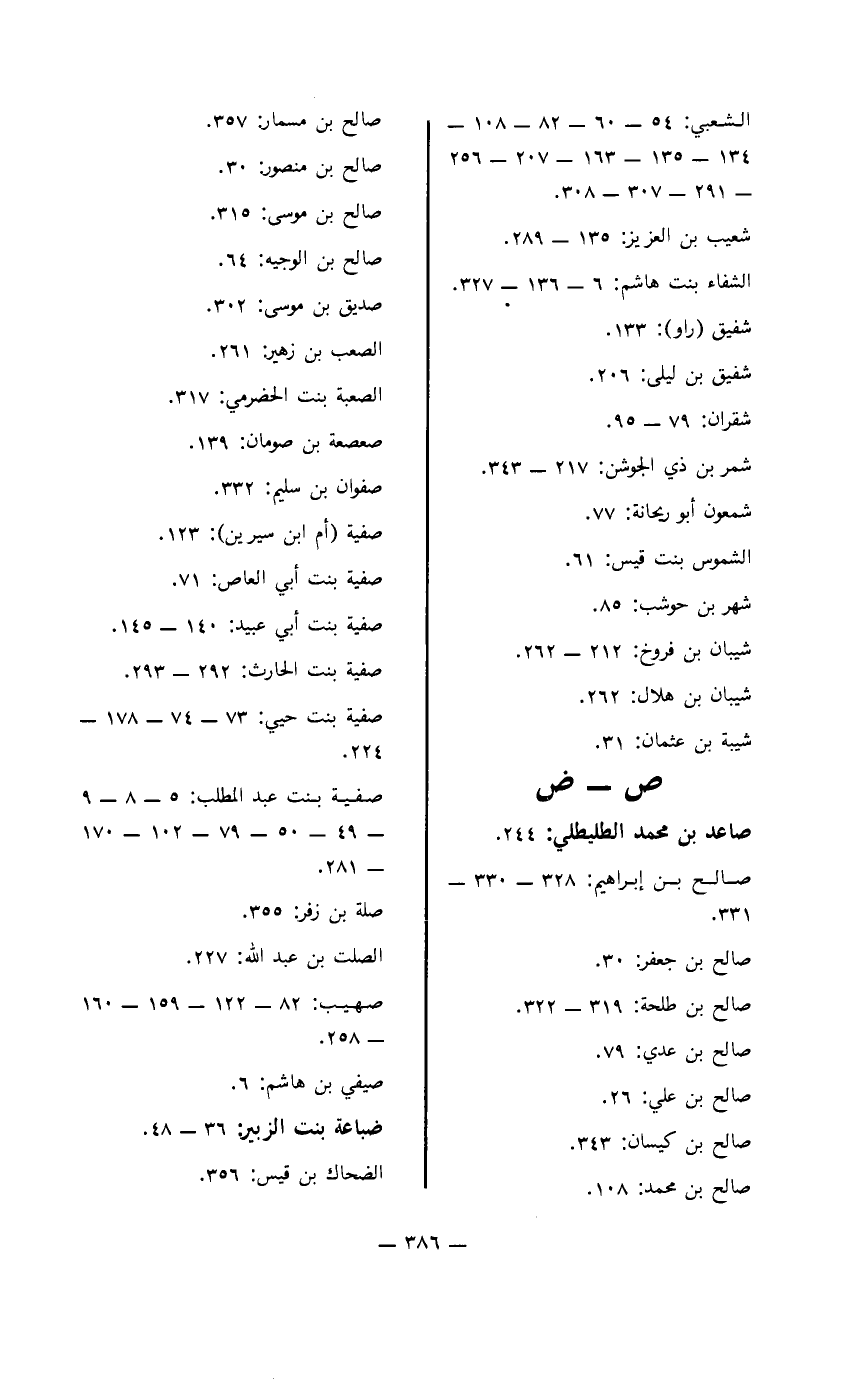 الشعبي: ٥٤ — ٦٠ — ٨٢ — ١٠٨ —
١٣٤ — ١٣٥ — ١٦٣ — ٢٠٧ — ٢٥٦
— ٢٩١ — ٣٠٧ — ٣٠٨.
شعيب بن العزيز: ١٣٥ — ٢٨٩.
الشفاء بنت هاشم: ٦ — ١٣٦ — ٣٢٧.
شفيق (راو): ١٣٣.
شفيق بن ليلى: ٢٠٦.
شقران: ٧٩ — ٩٥.
شمر بن ذي الجوشن: ٢١٧ — ٣٤٣.
شمعون أبو ريحانة: ٧٧.
الشموس بنت قيس: ٦١.
شهر بن حوشب: ٨٥.
شيبان بن فروخ: ٢١٢ — ٢٦٢.
شيبان بن هلال: ٢٦٢.
شيبة بن عثمان: ٣١.
ص — ض
صاعد بن محمد الطليطلي: ٢٤٤.
صالح بن إبراهيم: ٣٢٨ — ٣٣٠ —
٣٣١.
صالح بن جعفر: ٣٠.
صالح بن طلحة: ٣١٩ — ٣٢٢.
صالح بن عدي: ٧٩.
صالح بن علي: ٢٦.
صالح بن كيسان: ٣٤٣.
صالح بن محمد: ١٠٨.
صالح بن مسمار: ٣٥٧.
صالح بن منصور: ٣٠.
صالح بن موسى: ٣١٥.
صالح بن الوجيه: ٦٤.
صديق بن موسى: ٣٠٢.
الصعب بن زهير: ٢٦١.
الصعبة بنت الحضرمي: ٣١٧.
صعصعة بن صومان: ١٣٩.
صفوان بن سليم: ٣٣٢.
صفية (أم ابن سيرين): ١٢٣.
صفية بنت أبي العاص: ٧١.
صفية بنت أبي عبيد: ١٤٠ — ١٤٥.
صفية بنت الحارث: ٢٩٢ — ٢٩٣.
صفية بنت حيي: ٧٣ — ٧٤ — ١٧٨ —
٢٢٤.
صفية بنت عبد المطلب: ٥ — ٨ — ٩
— ٤٩ — ٥٠ — ٧٩ — ١٠٢ — ١٧٠
— ٢٨١.
صلة بن زفر: ٣٥٥.
الصلت بن عبد الله: ٢٢٧.
صهيب: ٨٢ — ١٢٢ — ١٥٩ — ١٦٠
— ٢٥٨.
صيفي بن هاشم: ٦.
ضباعة بنت الزبير: ٣٦ — ٤٨.
الضحاك بن قيس: ٣٥٦.
— ٣٨٦ —